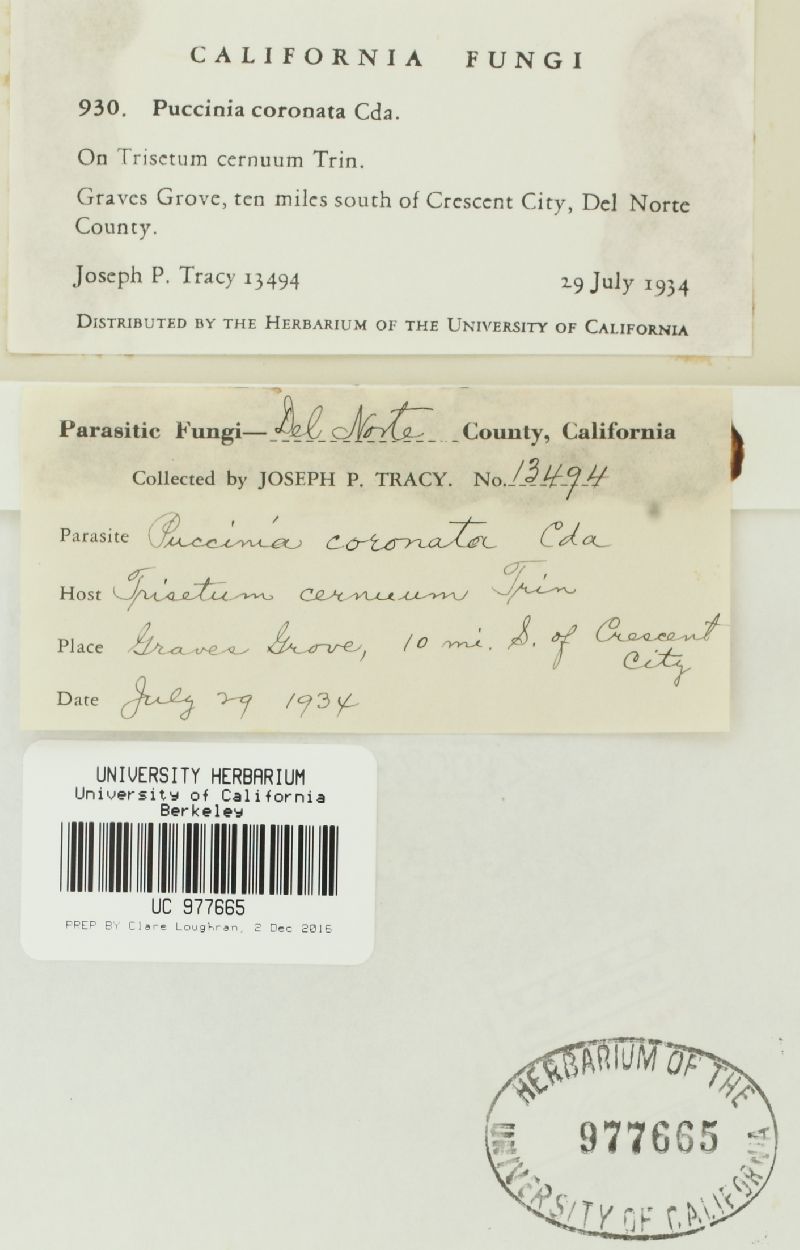 CALIFORNIA FUNGI
930. Puccinia coronata Cda.
On Trisetum cernuum Trin.
Graves Grove, ten miles south of Crescent City, Del Norte
County.
Joseph P. Tracy 13494 29 July 1934
DISTRIBUTED BY THE HERBARIUM OF THE UNIVERSITY OF CALIFORNIA
Parasitic Fungi—Del Norte County, California
Collected by JOSEPH P. TRACY. No. 13494
Parasite Puccinia coronata Cda
Host Trisetum cernuum Trin
Place Graves Grove, 10 mi. S. of Crescent
City
Date July 29 1934
UNIVERSITY HERBARIUM
University of California
Berkeley
UC 977665
PREP BY Clare Loughran, 2 Dec 2016
HERBARIUM OF THE
977665
UNIVERSITY OF CALIFORNIA